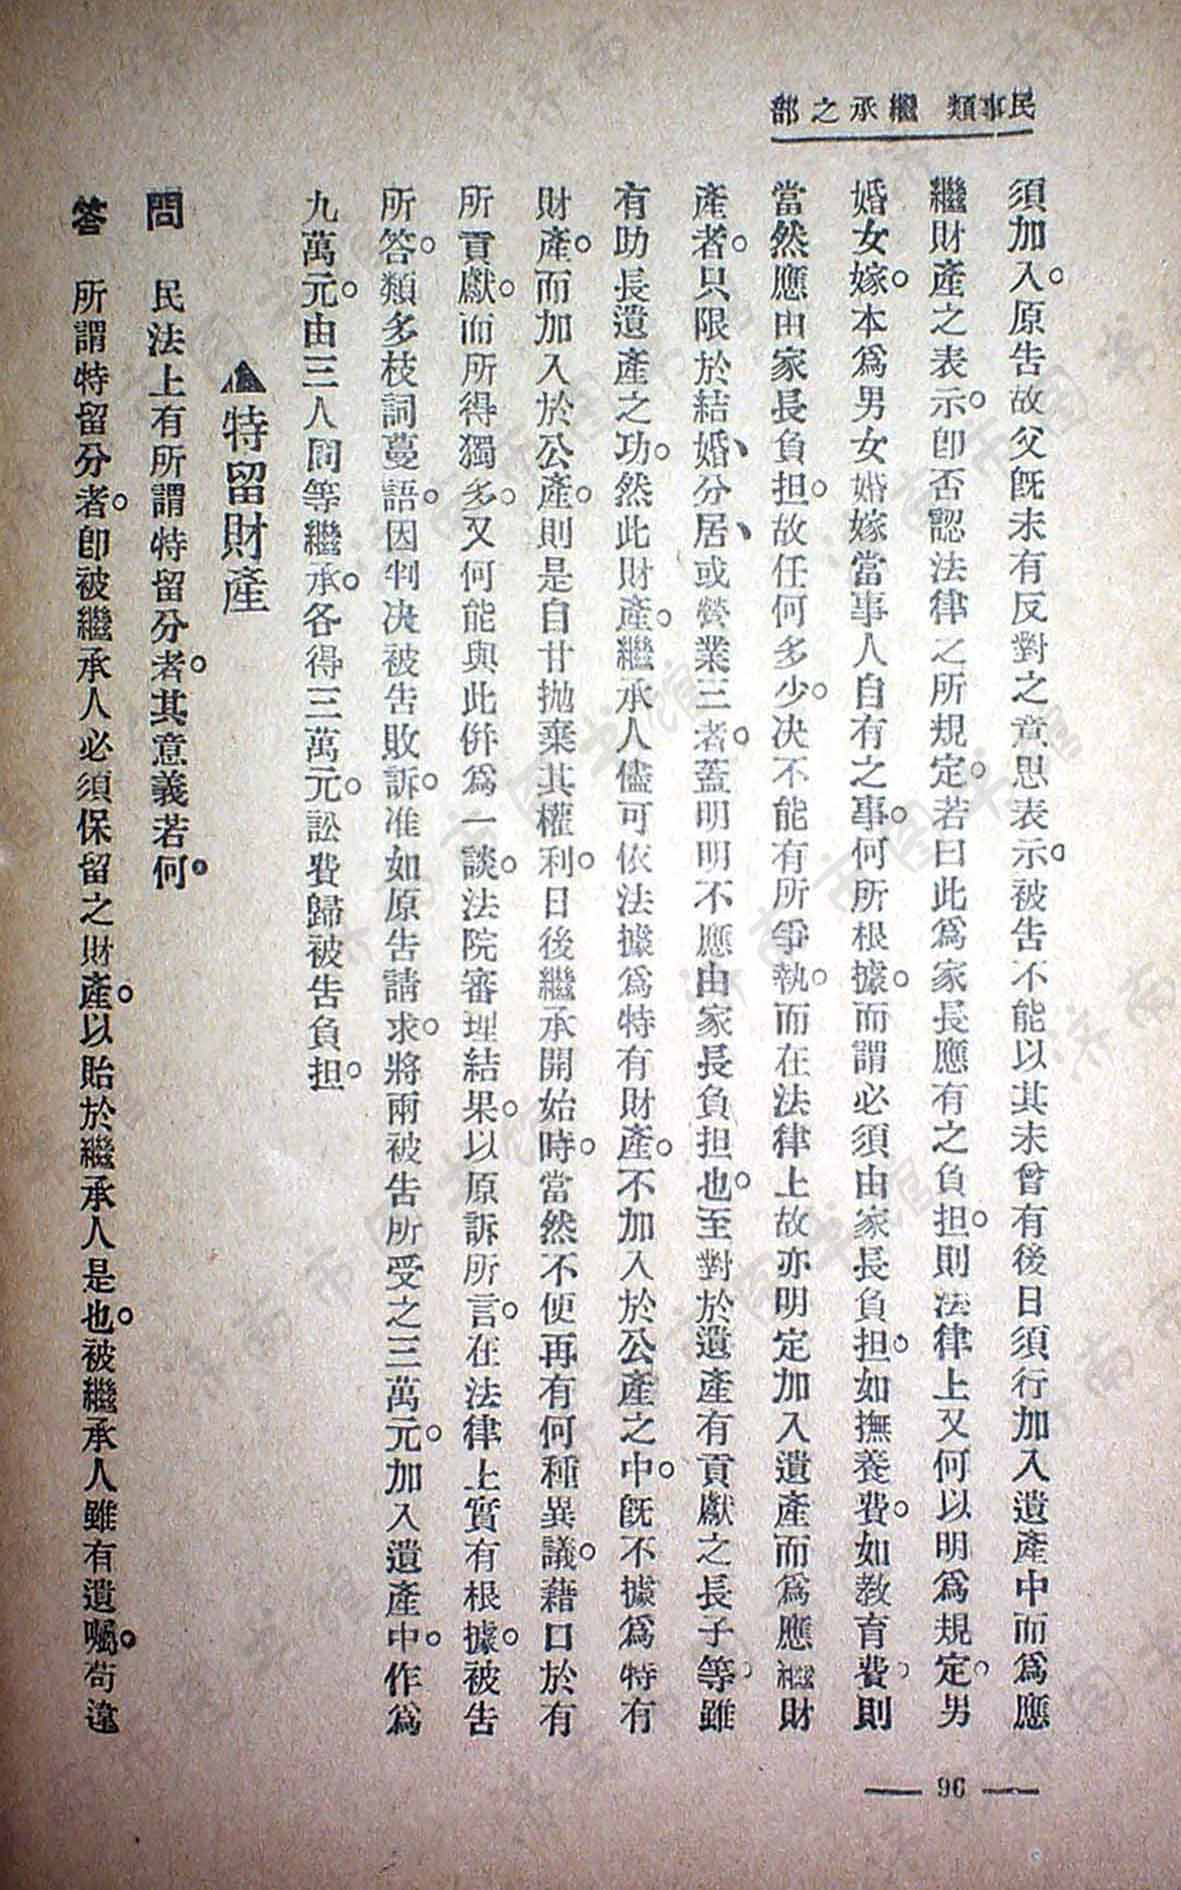 民事類 繼承之部
須加入。原告故父既未有反對之意思表示。被告不能以其未曾有後日須行加入遺產中而為應
繼財產之表示。卽否認法律之所規定。若曰此為家長應有之負担。則法律上又何以明為規定。男
婚女嫁。本為男女婚嫁當事人自有之事。何所根據。而謂必須由家長負担。如撫養費。如教育費。則
當然應由家長負担。故任何多少。决不能有所爭執。而在法律上故亦明定加入遺產而為應繼財
產者。只限於結婚、分居、或營業三者。蓋明明不應由家長負担也。至對於遺產有貢獻之長子等。雖
有助長遺產之功。然此財產。繼承人儘可依法據為特有財產。不加入於公產之中。旣不據為特有
財產。而加入於公產。則是自甘拋棄其權利。日後繼承開始時。當然不便再有何種異議。藉口於有
所貢獻。而所得獨多。又何能與此併為一談。法院審理結果。以原訴所言。在法律上實有根據。被告
所答。類多枝詞蔓語。因判决被告敗訴。准如原告請求。將兩被告所受之三萬元。加入遺產中。作為
九萬元。由三人同等繼承。各得三萬元。訟費歸被告負担。
▲特留財產
問 民法上有所謂特留分者。其意義若何。
答 所謂特留分者。卽被繼承人必須保留之財產。以貽於繼承人是也。被繼承人雖有遺囑。苟違
— 96 —